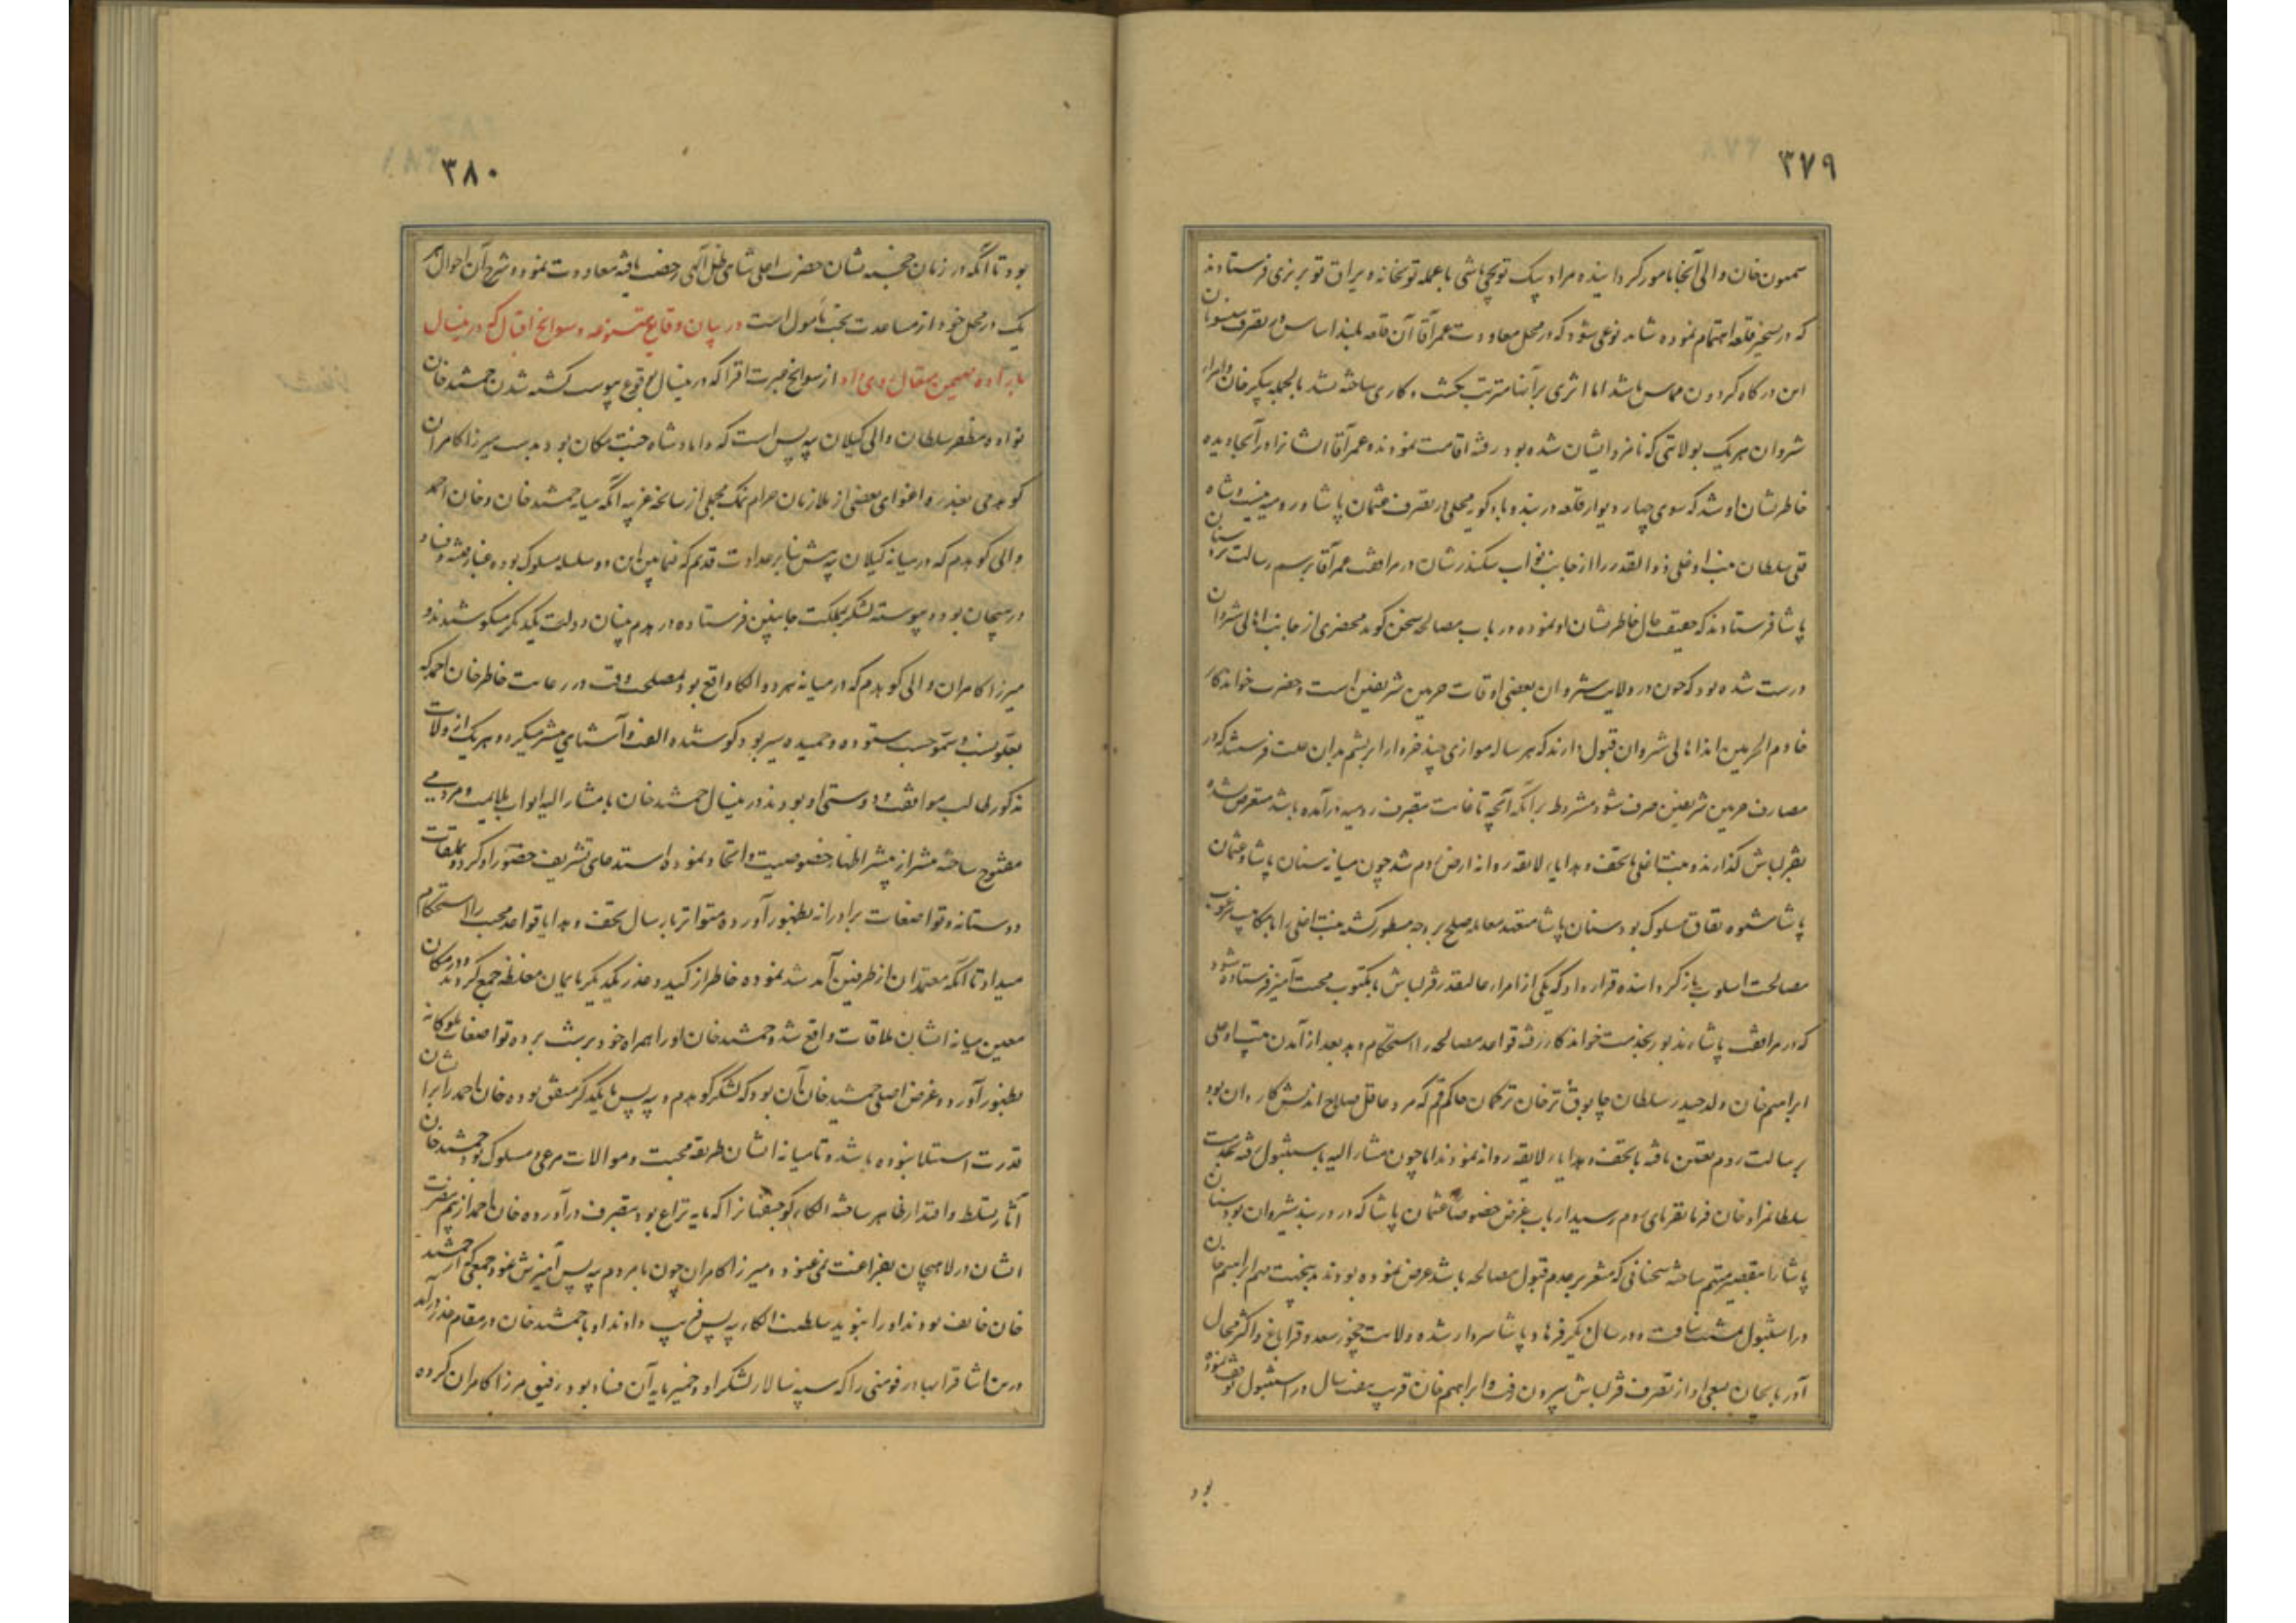 ۳۷۹
سمعون خان والی آنجا مامور گردانیده مراد بیک توپچی باشی با عمله توپخانه و یراق توپ ریزی فرستادند
که در تسخیر قلعه اهتمام نموده شاید نوعی شود که در محل معاودت عمر آقا آن قلعه بلند اساس در تصرف
این درگاه گردون مماس باشد اما اثری بر آنها مترتب نگشت و کاری ساخته نشد بالجمله پیکر خان و امراء
شروان هر یک بولایتی که نامزد ایشان شده بود رفته اقامت نمودند و عمر آقا ایشانرا در آنجا دیده
خاطرنشان او شد که سوی چهار دیوار قلعه دربند و بادکوبه محلی در تصرف عثمان پاشا و رومیه نیست و شاه
قلی سلطان ذوالقدر را از جانب نواب سکندرشان در مرافقت عمر آقا برسم رسالت نزد سنان
پاشا فرستادند که حقیقت حال خاطرنشان او نموده در باب مصالحه سخن گوید محضری از جانب اهالی شروان
درست شده بود که چون در ولایت شروان بعضی اوقات حرمین شریفین است و حضرت خواندگار
خادم الحرمین اند اهالی شروان قبول دارند که هر ساله موازی چند خروار ابریشم بدان علت فرستند که در
مصارف حرمین شریفین صرف شود مشروط بر آنکه آنچه تا غایت بتصرف رومیه در آمده باشد متعرض نشده
بقزلباش گذارند و با تحف و هدایاء لایقه روانه ارض روم شد چون میانه سنان پاشا و عثمان
پاشا شیوه نفاق مسلوک بود سنان پاشا متعهد معامله صلح بر وجه مسطور گشته را با مکاتیب مرغوب
مصالحت اسلوب باز گردانیده قرار داد که یکی از امراء عالیقدر قزلباش با مکتوب محبت آمیز فرستاده شود
که در مرافقت پاشاء مزبور بخدمت خواندگار رفته قواعد مصالحه را استحکام دهد بعد از آمدن
ابراهیم خان ولد حیدر سلطان چابوق ترخان ترکمان حاکم قم که مرد عاقل صلاح اندیش کاردان بود
برسالت روم تعیین یافته با تحف و هدایاء لایقه روانه نمودند اما چون مشار الیه باستنبول رفته بخدمت
سلطانمراد خان فرمانفرمای روم رسید ارباب غرض خصوصا عثمان پاشا که در دربند شیروان بود سنان
پاشا را بتقصیر متهم ساخته سخنانی که مشعر بر عدم قبول مصالحه باشد عرض نموده بودند بدینجهت مهم ابراهیم خان
در استنبول تمشیت نیافت و در سال دیگر فرهاد پاشا سردار شده ولایت چخور سعد و قراباغ و اکثر محال
آذربایجان بسعی او از تصرف قزلباش بیرون رفت و ابراهیم خان قریب هفت سال در استنبول توقف نموده
بود
۳۸۰
بود تا آنکه در زمان خجسته نشان حضرت اعلی شاهی ظل آلهی رخصت یافته معاودت نمود و شرح آن احوال هر
یک در محل خود از مساعدت بخت مأمول است در بیان وقایع متنوعه و سوانح اقبال که در ینسال
از سوانح عبرت افزا که در ینسال بوقوع پیوست کشته شدن جمشید خان
نواده مظفر سلطان والی گیلان بیه پس است که داماد شاه جنت مکان بود بدست میرزا کامران
کوهدمی بغدر و اغوای بعضی از ملازمان حرام نمک مجملی از سانحه غریبه آنکه میانه جمشید خان و خان احمد
والی کوهدم که در میانه گیلان بیه پیش بنابر عداوت قدیم که فیمابین این دو سلسله مسلوک بوده غبار فتنه و فساد
در هیجان بود و پیوسته لشکر بمملکت جانبین فرستاده در هدم بنیان دولت یکدیگر میکوشیدند و
میرزا کامران والی کوهدم که در میانه هر دو الکا واقع بود بمصلحت وقت در رعایت خاطر خان احمد که
بعلو نسب و سمو حسب ستوده و حمیده سیر بود کوشیده الفت و آشنایی بیشتر میکرد و هر یک از ولات
مذکور طالب موافقت و دوستی او بودند در ینسال جمشید خان با مشار الیه ابواب ملایمت و مردمی
مفتوح ساخته بیشتر از پیشتر اظهار خصوصیت و اتحاد نموده استدعای تشریف حضور او کرد و ملاقات
دوستانه و تواضعات برادرانه بظهور آورده متواتر بارسال تحف و هدایا قواعد محبت را استحکام
میداد تا آنکه معتمدان از طرفین آمد شد نموده خاطر از کید و غدر یکدیگر بایمان مغلظه جمع کردند و در مکان
معین میانه ایشان ملاقات واقع شد و جمشید خان او را همراه خود برشت برده تواضعات ملوکانه
بظهور آورد و غرض اصلی جمشید خان آن بود که لشکر کوهدم و بیه پس با یکدیگر متفق بوده خان احمد را بر ایشان
قدرت استیلا نبوده باشد و تا میانه ایشان طریقه محبت و موالات مرعی و مسلوک بود جمشید خان
آثار تسلط و اقتدار ظاهر ساخته الکاء کوچصفهان را که مابه نزاع بود بتصرف در آورده خان احمد از بیم مضرت
ایشان در لاهیجان بفراغت نمی غنود و میرزا کامران چون با مردم بیه پس آمیزش نمود جمعی که از جمشید
خان خایف بودند او را بنوید سلطنت الکاء بیه پس فریب دادند او با جمشید خان در مقام غدر در آمد
در ین اثنا قرابهادر فومنی را که سپه سالار لشکر او و خمیر مایه آن فساد بود رفیق میرزا کامران کرده